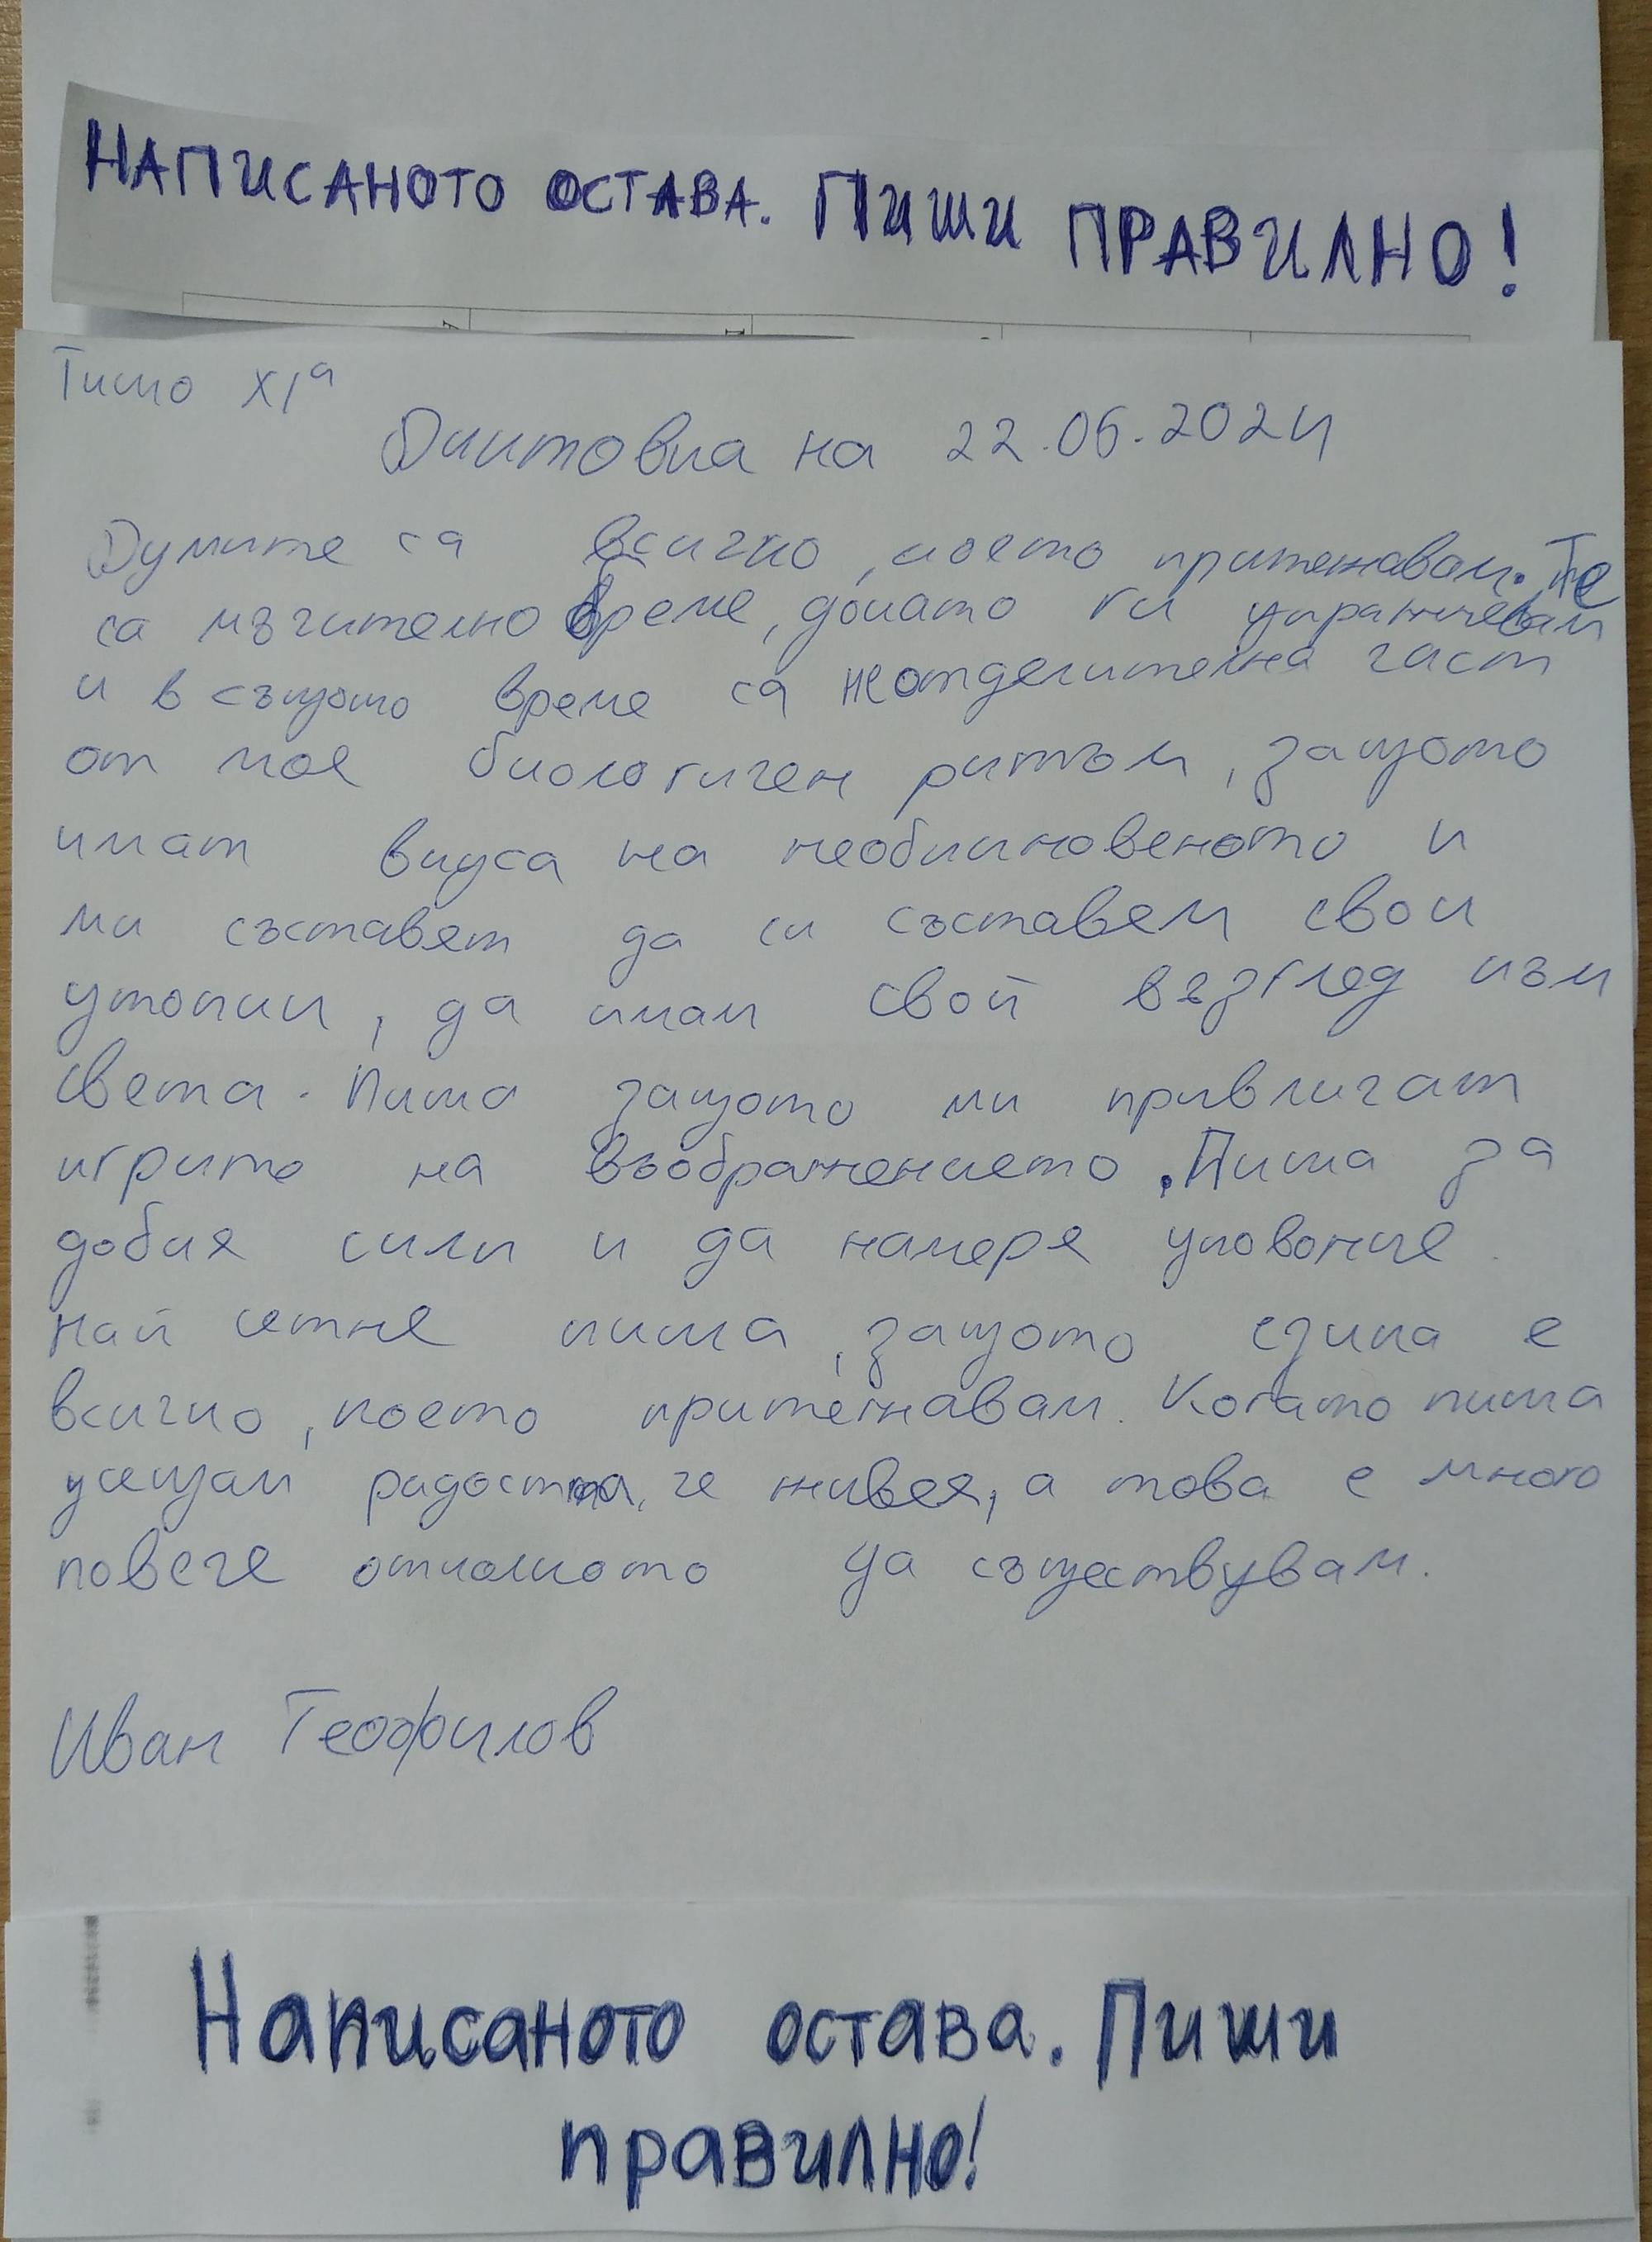 НАПИСАНОТО ОСТАВА. ПИШИ ПРАВИЛНО!
Тишо XIа
Диктовка на 22.06.2024
Думите са всичко, което притежавам. Те
са мъчително време, докато ги упражнчевам
и в същото време са неотделителна част
от моя биологичен ритъм, защото
имат вкуса на необикновеното и
ми съставят да си съставем свои
утопии, да имам свой възглед към
света. Пиша защото ми привличат
игрите на въображението. Пиша за
добия сили и да намеря упование.
най сетне пиша, защото езика е
всичко, което притежавам. Когато пиша
усещам радостта, че живея, а това е много
повече отколкото да съществувам.
Иван Теофилов
Написаното остава. Пиши
правилно!